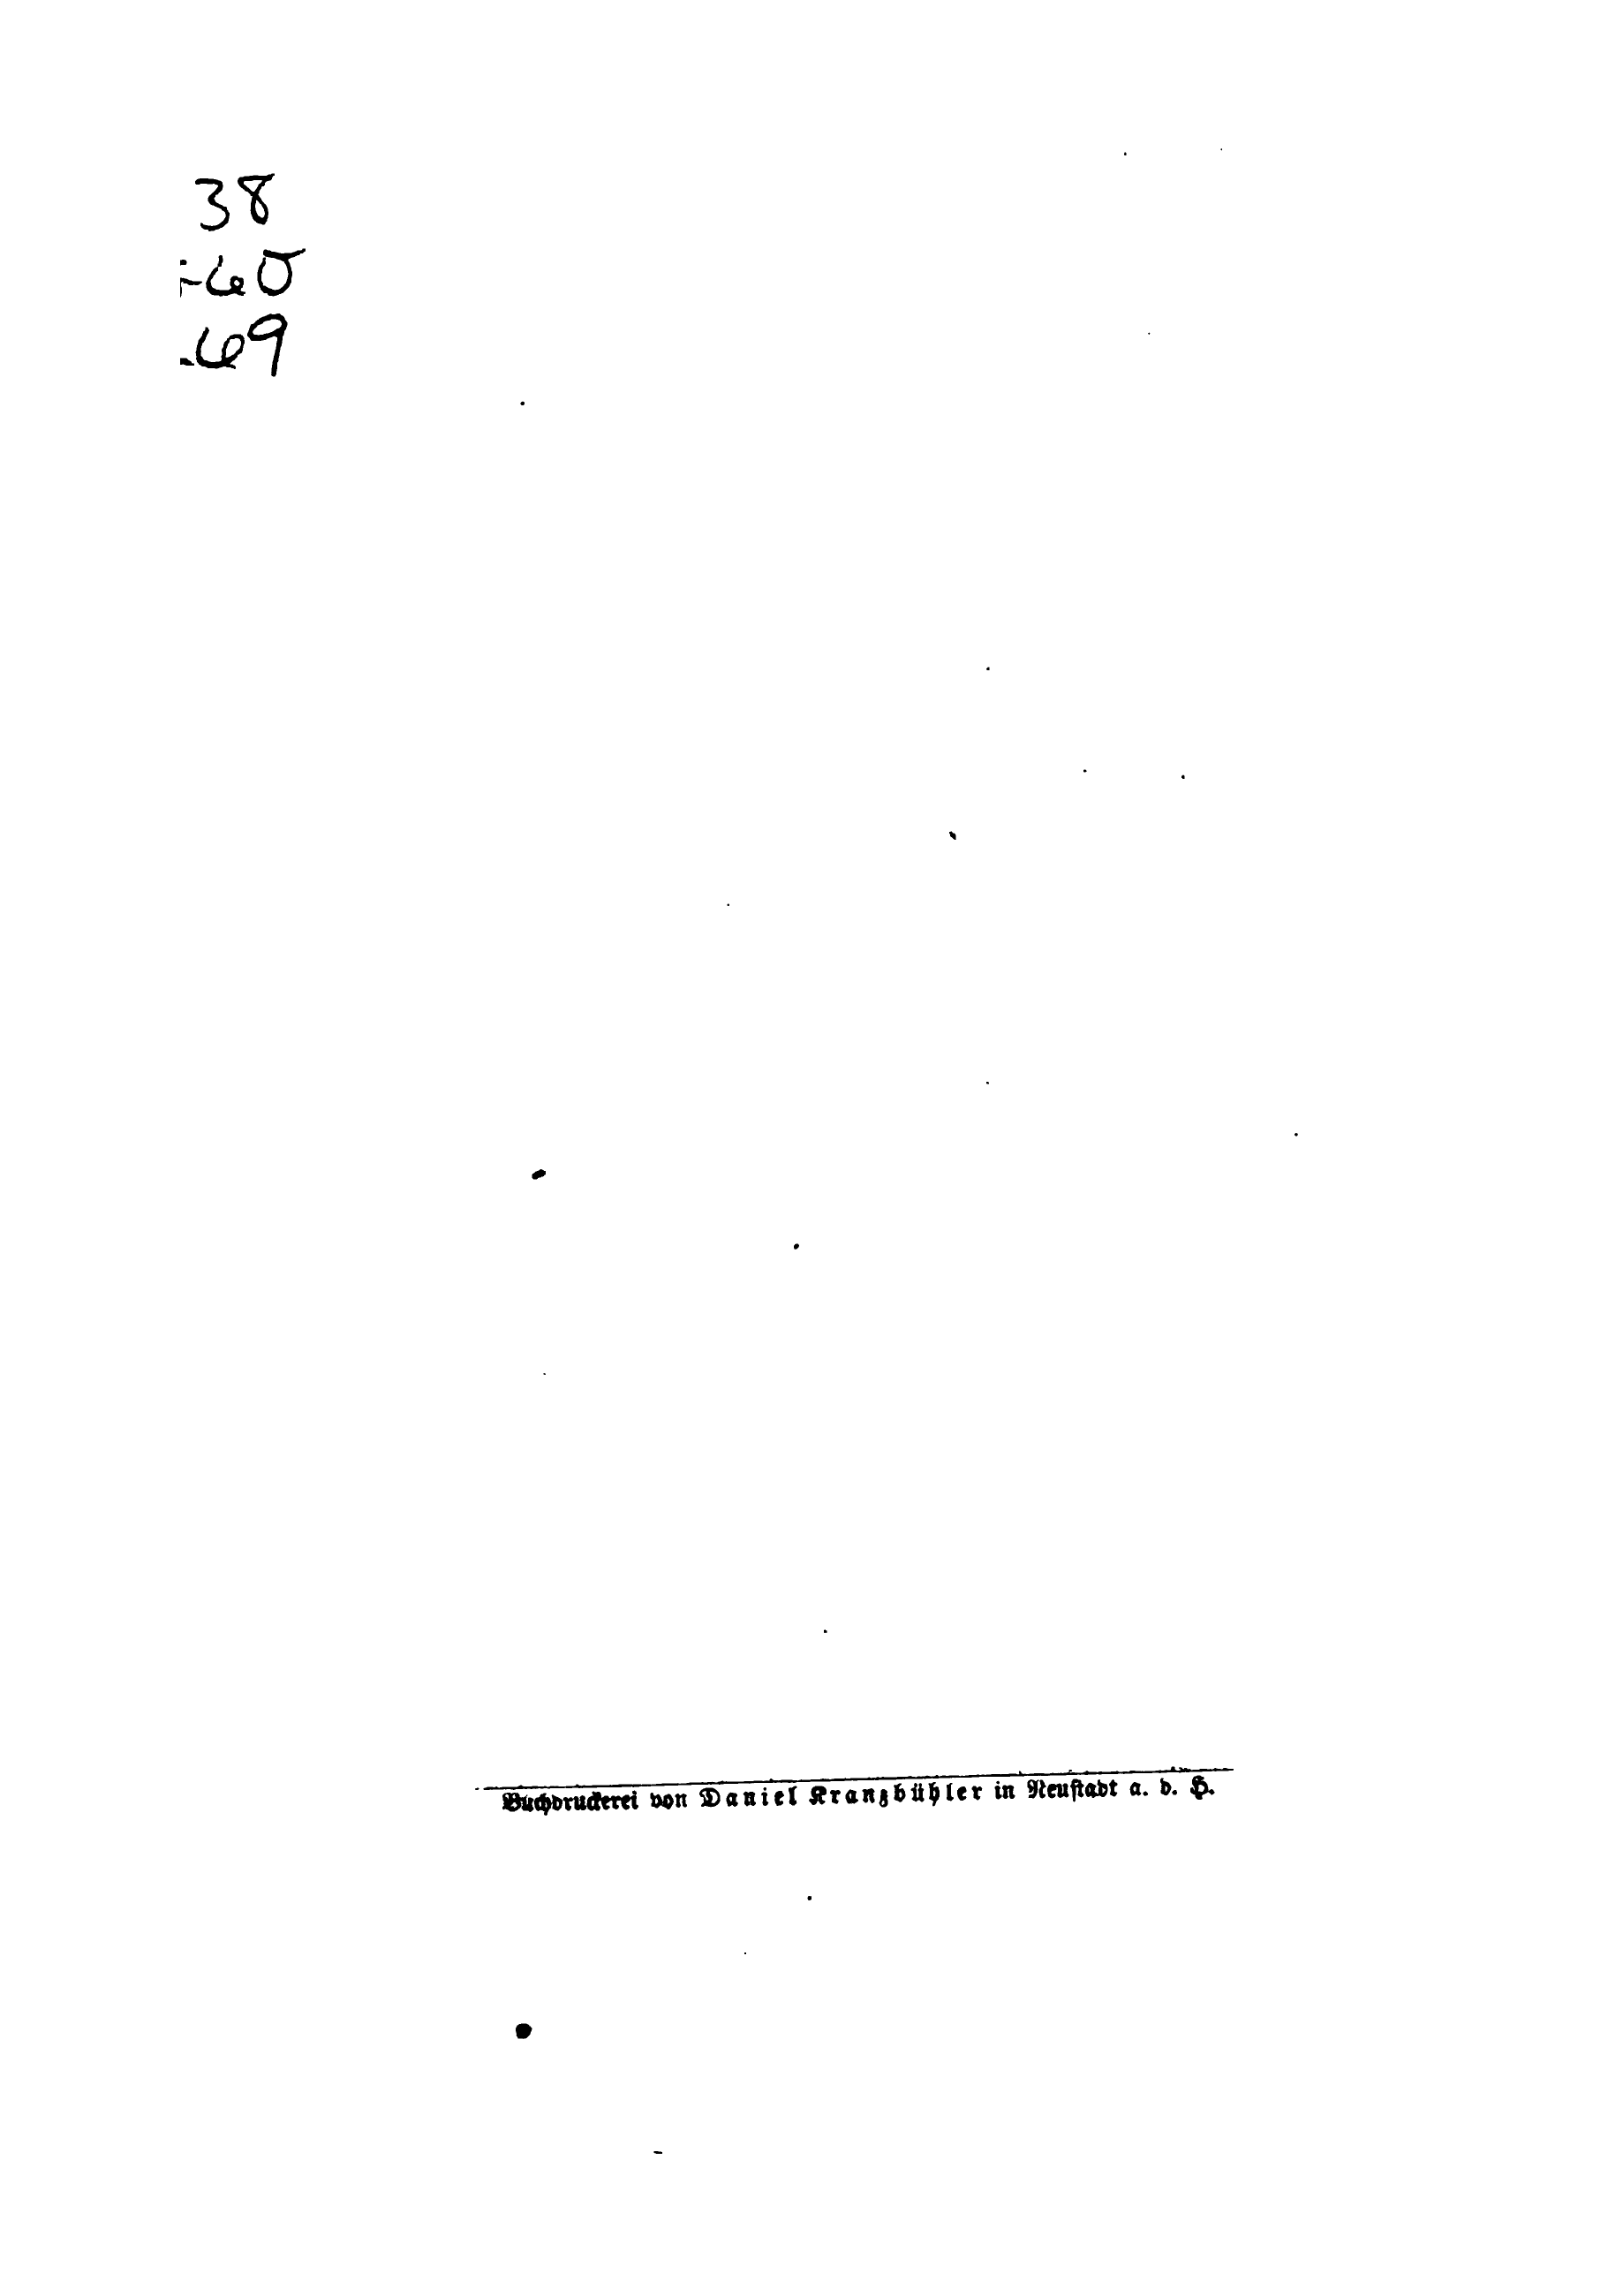 38
-60
-69
Buchdruckerei von Daniel Kranzbühler in Neustadt a. d. H.